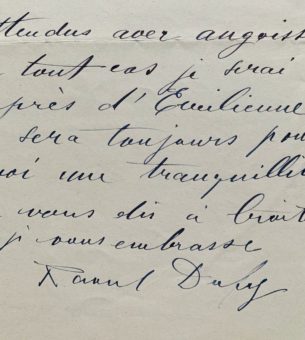 ttendus avec angoiss
tout cas je serai
près d'Emilienne
sera toujours pou
oi une tranquillit
vous dis à bient
j vous embrasse
Raoul Dufy